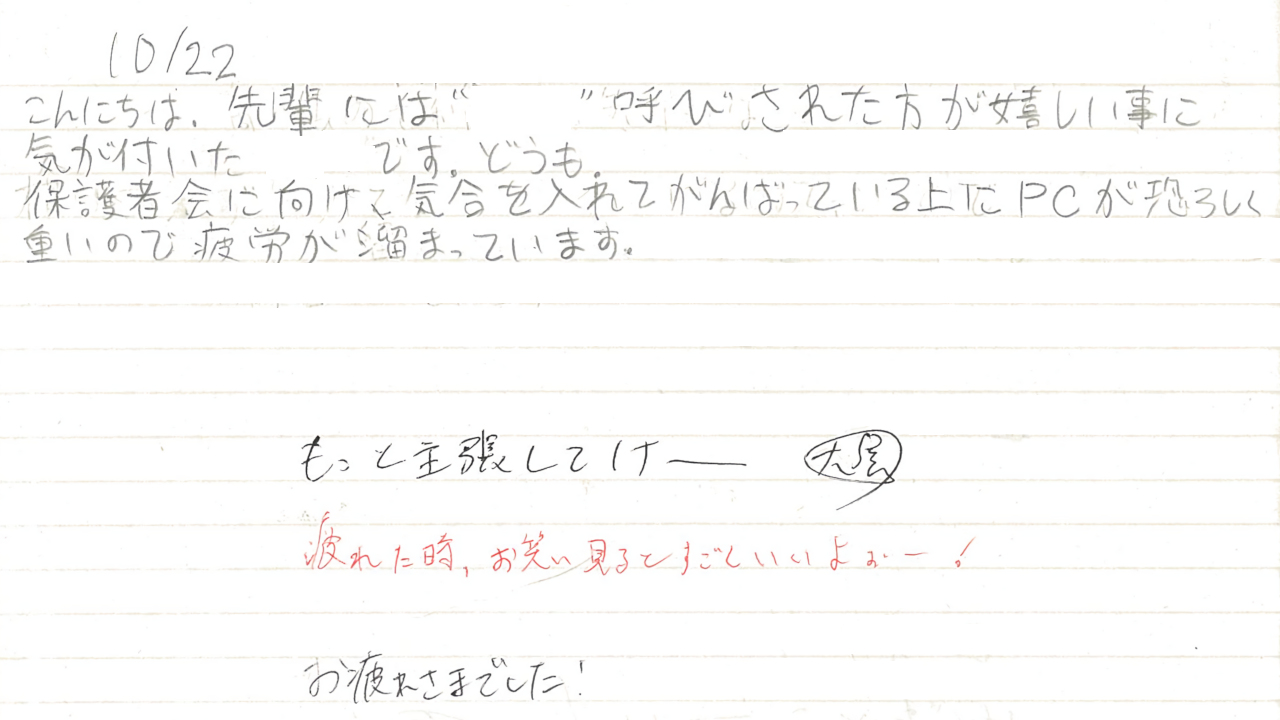 10/22
こんにちは。先輩には“ ”呼びされた方が嬉しい事に
気が付いた です。どうも。
保護者会に向けて気合を入れてがんばっている上にPCが恐ろしく
重いので疲労が溜まっています。
もっと主張してけー
疲れた時、お笑い見るとすごくいいよぉー!
お疲れさまでした!